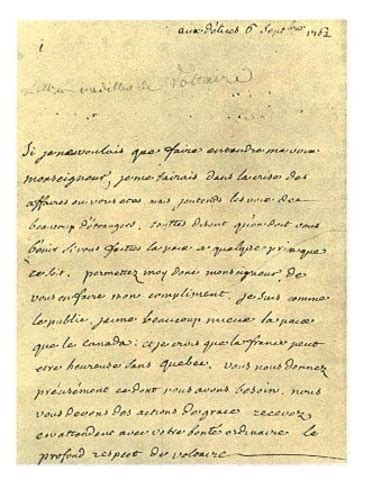 aux délices 6 Septbre 1762
de Voltaire
Si je ne voulais que faire entendre ma voix
monseigneur, je me tairais dans la crise des
affaires ou vous etes. mais j'entends les voix de
beaucoup d'étrangers, touttes disent qu'on doit vous
bénir si vous faittes la paix a quelque prix que
ce soit. permettez moy donc monseigneur de
vous en faire mon compliment. je suis comme
le public, j'aime beaucoup mieux la paix
que le canada: et je crois que la france peut
etre heureuse sans Quebec. vous nous donnez
précisément ce dont nous avons besoin. nous
vous devons des actions de grace. recevez
en attendant avec votre bonté ordinaire le
profond respect de voltaire